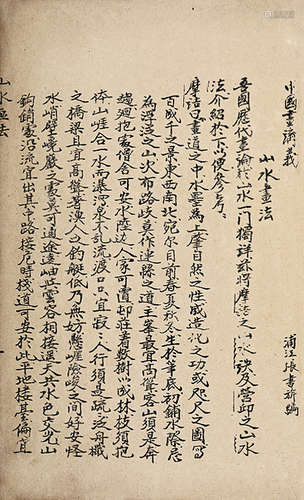 中國畫講義
浦江張書旂編
山水畫法
吾國歷代畫論於山水一門獨詳茲將摩詰之山水訣及營邱之山水
法介紹於下以便參考焉
摩詰曰畫道之中水墨為上肇自然之性成造化之功或咫尺之圖寫
百千里之景東西南北宛尔目前春夏秋冬生於筆底初鋪水際忌
為浮泛之山次布路歧莫作連綿之道主峯最宜高聳客山須是奔
趨迴抱處僧舍可安水陸邊人家可置邨莊著數樹以成林枝須抱
体山崖合一水而瀑瀉泉不乱流渡口只宜寂寂人行須是疏疏泛舟檝
之橋梁且宜高聳著漁人之釣艇低乃無妨懸崖險峻之間好安怪
木峭壁巉巖之處莫可通途遠岫與雲容相接遥天共水色交光山
鈎鎖處沿流宜出其中路接危時棧道可安於此平地樓臺偏宜
山水畫法